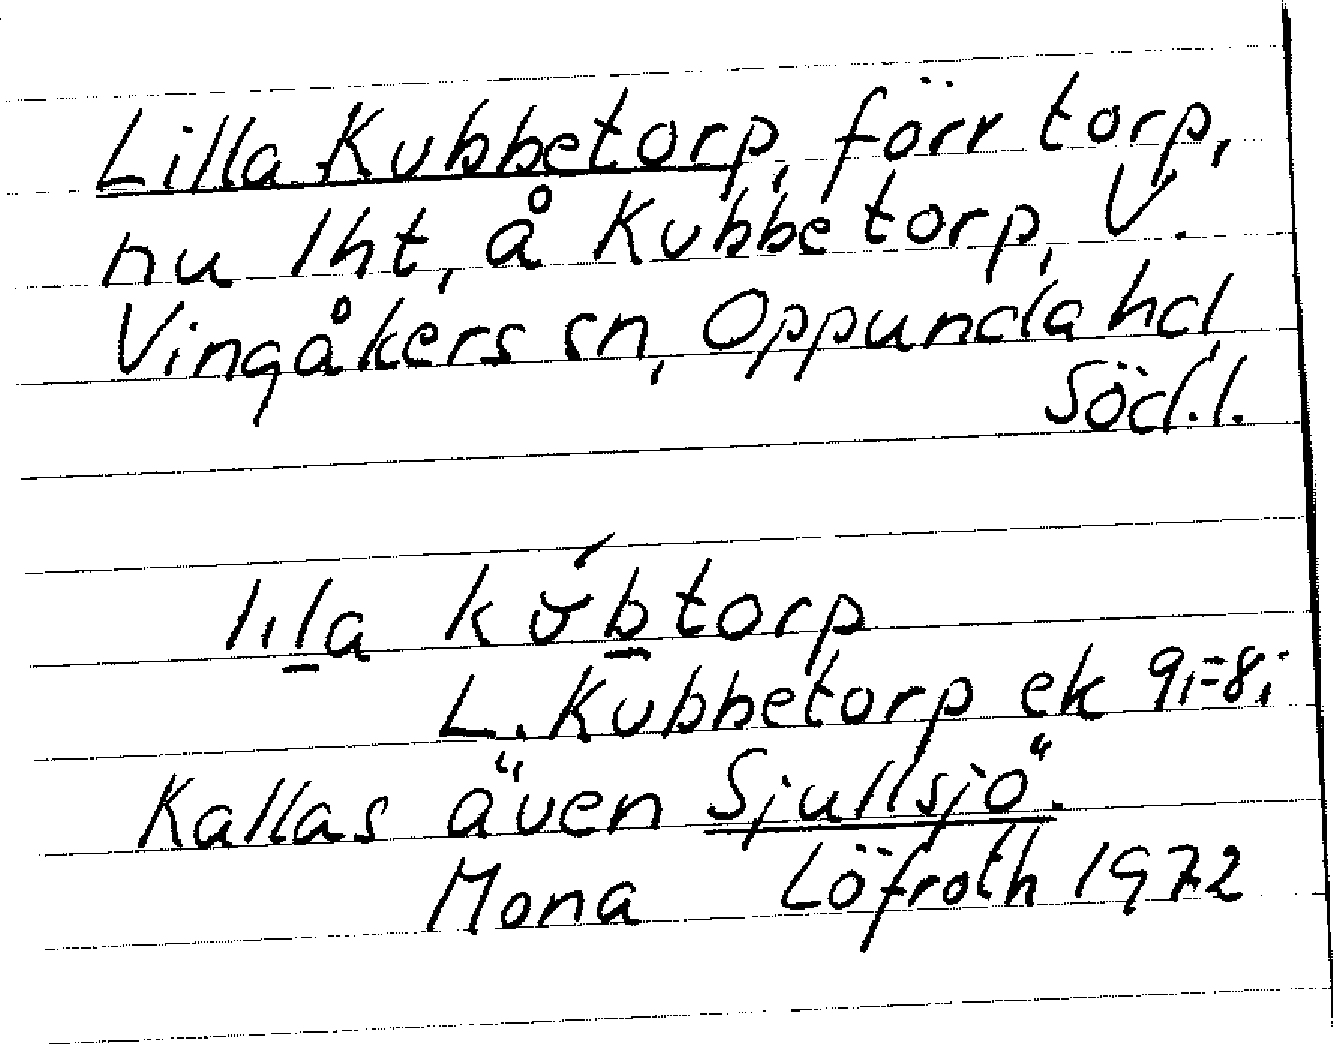 Lilla Kubbetorp, förr torp,
nu lht, å Kubbetorp, V.
Vingåkers sn, Oppunda hd,
Söd.l.
lɪla kúbtorp
L. Kubbetorp ek 9i-8i
Kallas även Sjullsjö".
Mona Löfroth 1972